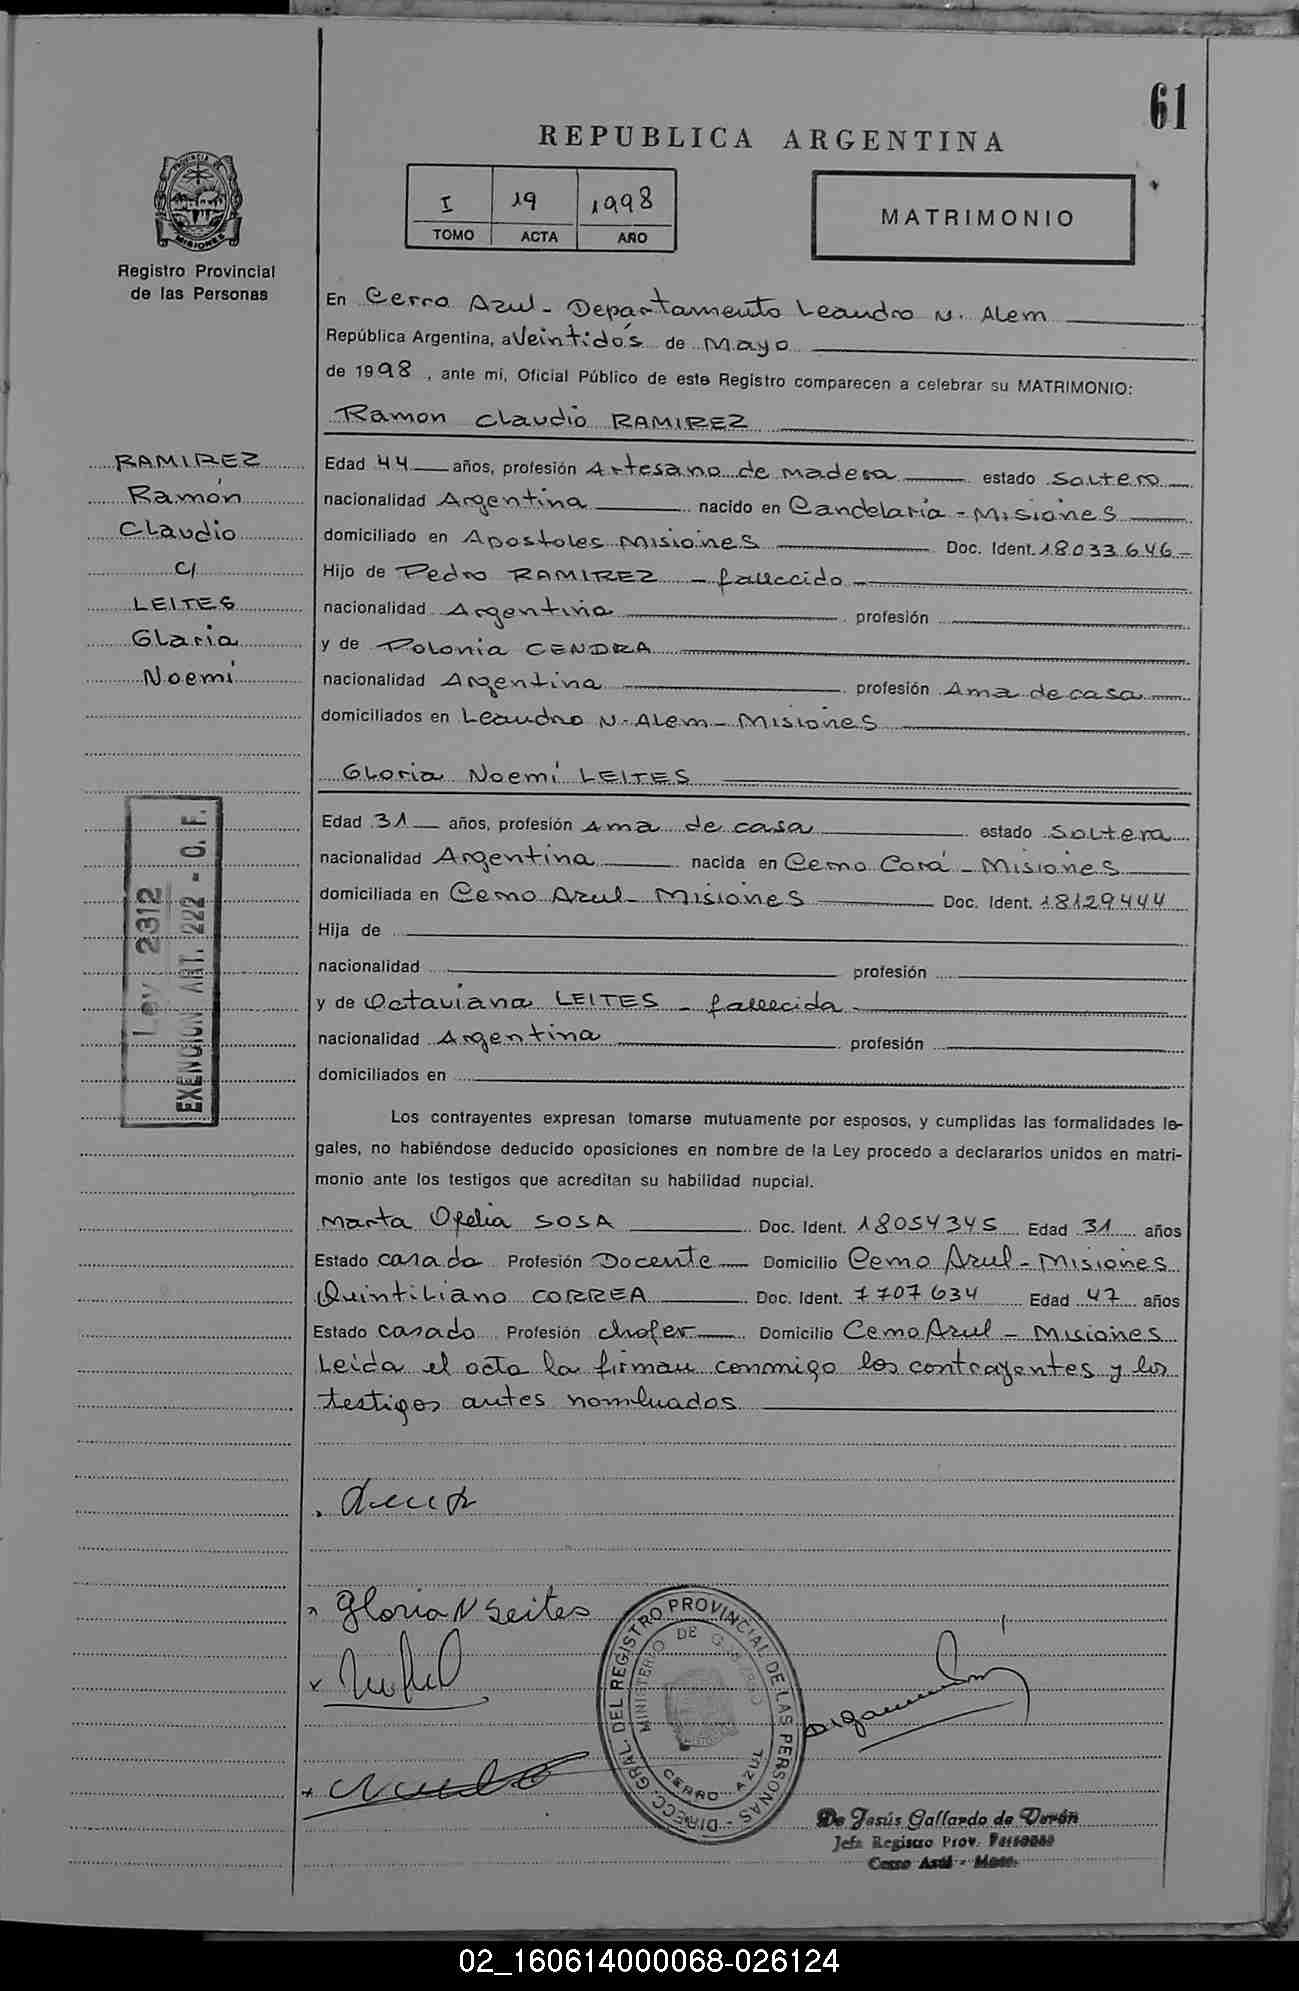 61
REPUBLICA ARGENTINA
PROVINCIA DE
MISIONES
Registro Provincial
de las Personas
I 19 1998
TOMO ACTA AÑO
MATRIMONIO
En Cerro Azul - Departamento Leandro N. Alem
República Argentina, a Veintidós de Mayo
de 1998, ante mi, Oficial Público de este Registro comparecen a celebrar su MATRIMONIO:
Ramon Claudio RAMIREZ
RAMIREZ
Ramón
Claudio
c/
LEITES
Glaria
Noemí
Edad 44 años, profesión Artesano de madera estado Soltero
nacionalidad Argentina nacido en Candelaria - Misiones
domiciliado en Apostoles Misiones Doc. Ident. 18033646
Hijo de Pedro RAMIREZ - fallecido -
nacionalidad Argentina profesión
y de Polonia CENDRA
nacionalidad Argentina profesión Ama de casa
domiciliados en Leandro N. Alem - Misiones
Gloria Noemí LEITES
Edad 31 años, profesión Ama de casa estado Soltera
nacionalidad Argentina nacida en Cerro Corá - Misiones
domiciliada en Cerro Azul - Misiones Doc. Ident. 18129444
Hija de
nacionalidad profesión
y de Octaviana LEITES - fallecida
nacionalidad Argentina profesión
domiciliados en
Ley 2312
EXENCION ART. 222 - O. F.
Los contrayentes expresan tomarse mutuamente por esposos, y cumplidas las formalidades le-
gales, no habiéndose deducido oposiciones en nombre de la Ley procedo a declararlos unidos en matri-
monio ante los testigos que acreditan su habilidad nupcial.
Marta Ofelia SOSA Doc. Ident. 18054345 Edad 31 años
Estado casada Profesión Docente Domicilio Cerro Azul - Misiones
Quintiliano CORREA Doc. Ident. 7707634 Edad 47 años
Estado casado Profesión chofer Domicilio Cerro Azul - Misiones
Leida el acta la firman conmigo los contrayentes y los
testigos antes nombrados
Gloria N Leites
DIRECC. GRAL. DEL REGISTRO PROVINCIAL DE LAS PERSONAS -
MINISTERIO DE GOBIERNO
CERRO AZUL
De Jesús Gallardo de Verón
Jefa Registro Prov. Personas
Cerro Azul - Mnes.
02_160614000068-026124